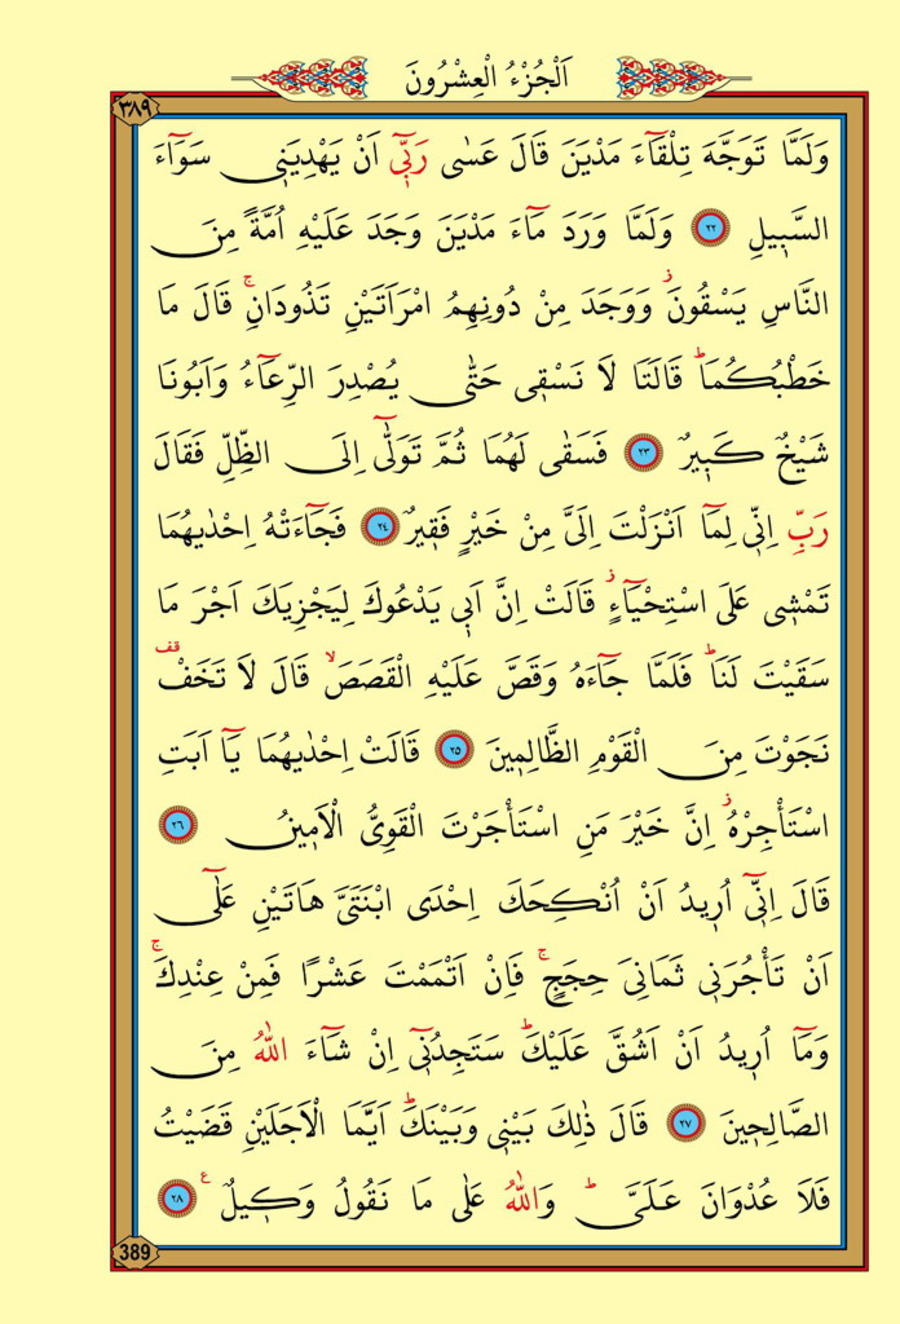 اَلْجُزْءُ الْعِشْرُونَ
٣٨٩
وَلَمَّا تَوَجَّهَ تِلْقَٓاءَ مَدْيَنَ قَالَ عَسٰى رَبّ۪ٓي اَنْ يَهْدِيَن۪ي سَوَٓاءَ
السَّب۪يلِ ﴿٢٢﴾ وَلَمَّا وَرَدَ مَٓاءَ مَدْيَنَ وَجَدَ عَلَيْهِ اُمَّةً مِنَ
النَّاسِ يَسْقُونَۘ وَوَجَدَ مِنْ دُونِهِمُ امْرَاَتَيْنِ تَذُودَانِۚ قَالَ مَا
خَطْبُكُمَاۜ قَالَتَا لَا نَسْق۪ي حَتّٰى يُصْدِرَ الرِّعَٓاءُ وَاَبُونَا
شَيْخٌ كَب۪يرٌ ﴿٢٣﴾ فَسَقٰى لَهُمَا ثُمَّ تَوَلّٰٓى اِلَى الظِّلِّ فَقَالَ
رَبِّ اِنّ۪ي لِمَٓا اَنْزَلْتَ اِلَيَّ مِنْ خَيْرٍ فَق۪يرٌ ﴿٢٤﴾ فَجَٓاءَتْهُ اِحْدٰيهُمَا
تَمْش۪ي عَلَى اسْتِحْيَٓاءٍۘ قَالَتْ اِنَّ اَب۪ي يَدْعُوكَ لِيَجْزِيَكَ اَجْرَ مَا
سَقَيْتَ لَنَاۜ فَلَمَّا جَٓاءَهُ وَقَصَّ عَلَيْهِ الْقَصَصَۙ قَالَ لَا تَخَفْ۠ قف
نَجَوْتَ مِنَ الْقَوْمِ الظَّالِم۪ينَ ﴿٢٥﴾ قَالَتْ اِحْدٰيهُمَا يَٓا اَبَتِ
اسْتَأْجِرْهُۘ اِنَّ خَيْرَ مَنِ اسْتَأْجَرْتَ الْقَوِيُّ الْاَم۪ينُ ﴿٢٦﴾
قَالَ اِنّ۪ٓي اُر۪يدُ اَنْ اُنْكِحَكَ اِحْدَى ابْنَتَيَّ هَاتَيْنِ عَلٰٓى
اَنْ تَأْجُرَن۪ي ثَمَانِيَ حِجَجٍۚ فَاِنْ اَتْمَمْتَ عَشْرًا فَمِنْ عِنْدِكَۚ
وَمَٓا اُر۪يدُ اَنْ اَشُقَّ عَلَيْكَۜ سَتَجِدُن۪ٓي اِنْ شَٓاءَ اللّٰهُ مِنَ
الصَّالِح۪ينَ ﴿٢٧﴾ قَالَ ذٰلِكَ بَيْن۪ي وَبَيْنَكَۜ اَيَّمَا الْاَجَلَيْنِ قَضَيْتُ
فَلَا عُدْوَانَ عَلَيَّۜ وَاللّٰهُ عَلٰى مَا نَقُولُ وَك۪يلٌ ع ﴿٢٨﴾
389